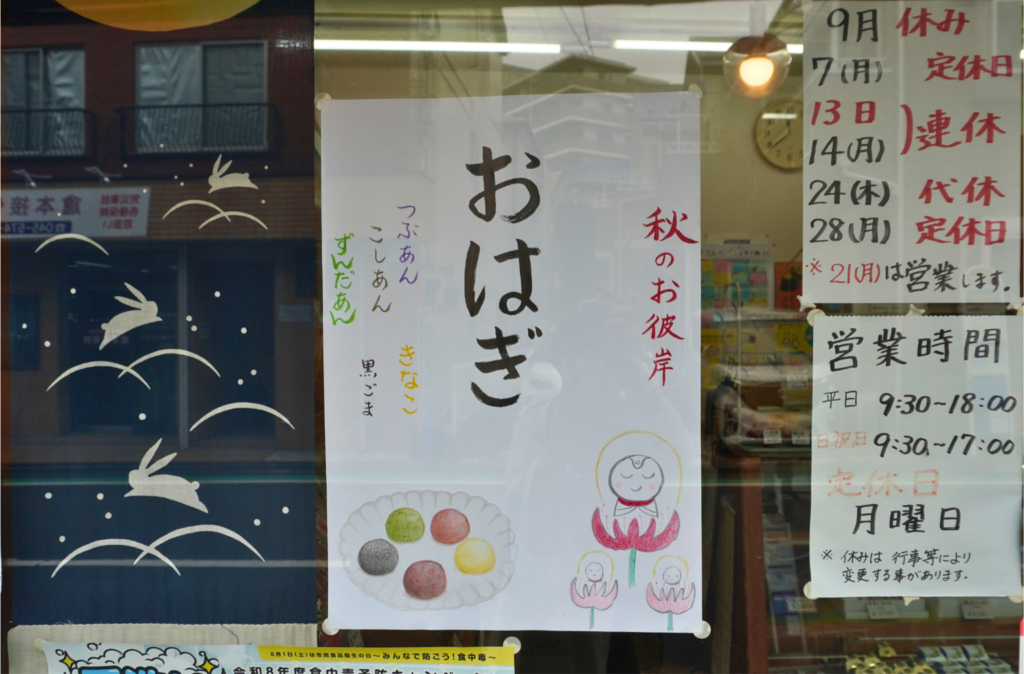 秋のお彼岸
おはぎ
つぶあん
こしあん
ずんだあん
きなこ
黒ごま
9月 休み
7(月) 定休日
13日
14(月) 連休
24(木) 代休
28(月) 定休日
※ 21(月)は営業します。
営業時間
平日 9:30~18:00
日祝日 9:30~17:00
定休日
月曜日
※ 休みは 行事等により
変更する事があります。
8月1日(土)は市民食品衛生の日~みんなで防ごう!食中毒~
令和8年度食中毒予防キャンペーン